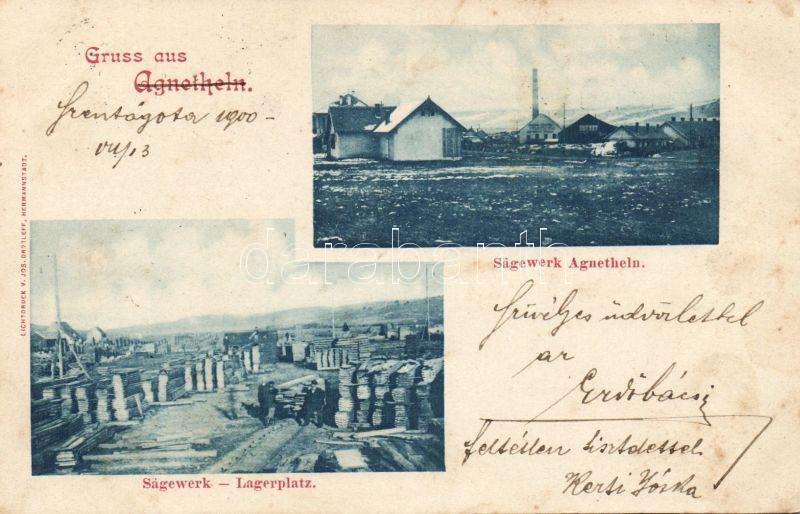 Gruss aus
Agnetheln.
Szentágota 1900
LICHTDRUCK V. JOS. DROTLEFF, HERMANNSTADT.
Sägewerk Agnetheln.
darabanth
Sägewerk – Lagerplatz.
Szívélyes üdvözlettel
az
Erdőbácsi
feltétlen tisztelettel
Kerti Jóska